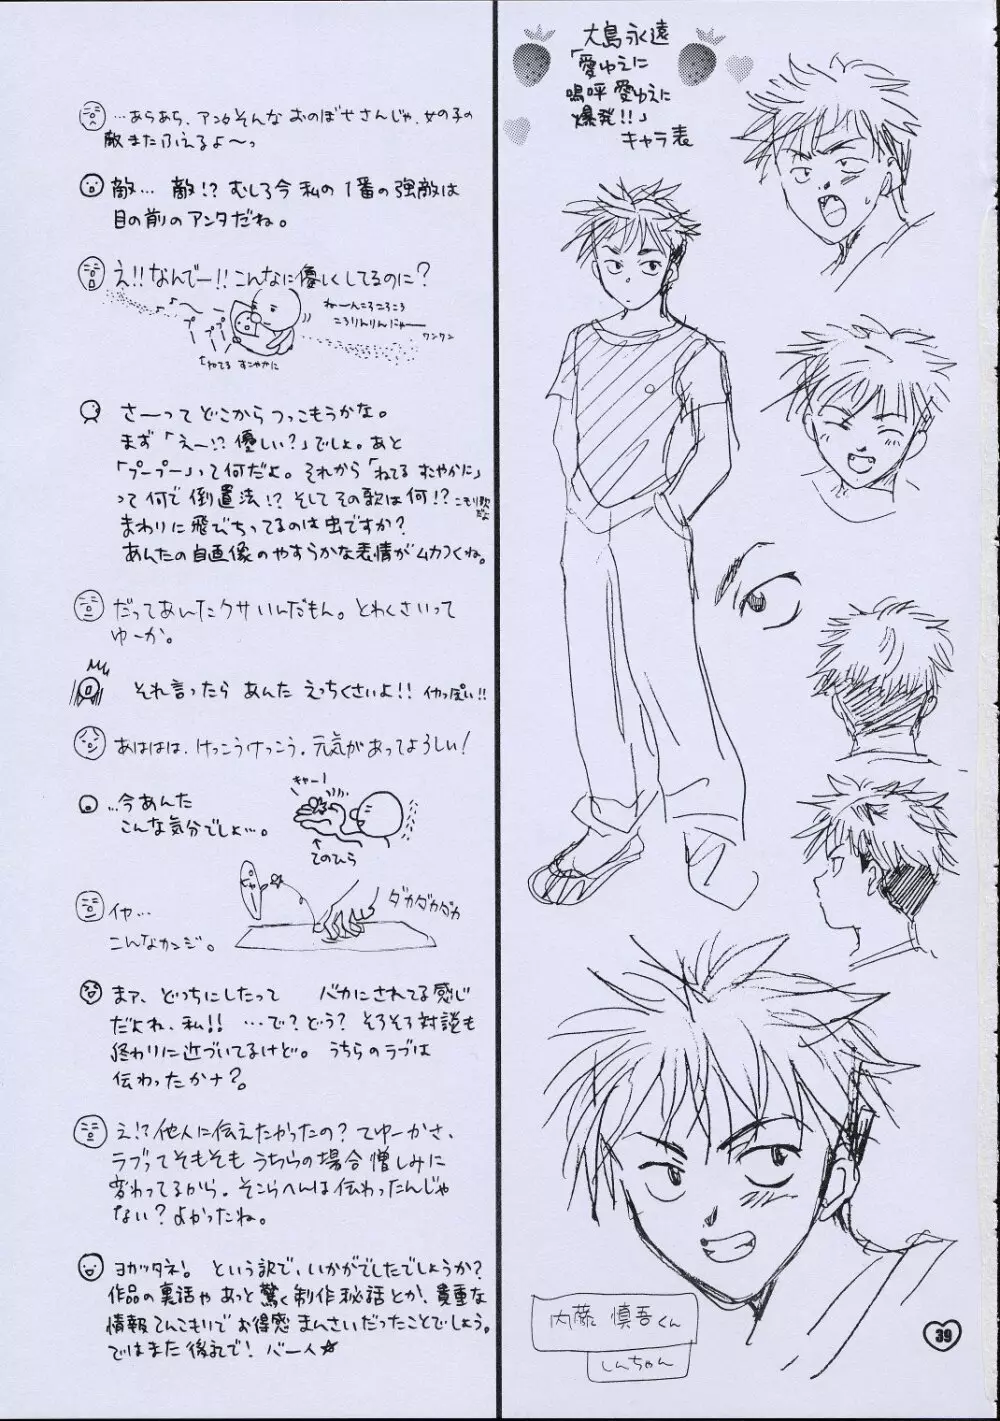 大島永遠
「愛ゆえに
嗚呼 愛ゆえに
爆発!!」
キャラ表
…あらあら、アンタそんな おのぼせさんじゃ、女の子の
敵またふえるよ〜っ
敵… 敵!? むしろ今 私の 1番の強敵は
目の前のアンタだね。
え!! なんでー!! こんなに優しくしてるのに?
ねーんころころころ
ころりんりんにゃー
ワンワン
プー プー
↑ねてる すこやかに
さーって どこから つっこもうかな。
まず「え〜!? 優しい?」でしょ。あと
「プープー」って何だよ。それから「ねてる すこやかに」
って何で 倒置法!? そして その歌は 何!? こもり歌だよ
まわりに飛びちってるのは 虫ですか?
あんたの自画像 のやすらかな表情がムカつくね。
だってあんたクサいんだもん。とわくさいって
ゆーか。
それ言ったら あんた えっちくさいよ!! イカっぽい!!
あははは、けっこうけっこう、元気があってよろしい!
…今あんた
こんな気分でしょ…。
キャー!
↑
てのひら
イヤ…
こんなカンジ。
ダカダカダカ
まァ、どっちにしたって バカにされてる感じ
だよね、私!! …で? どう? そろそろ対談も
終わりに近づいてるけど。うちらのラブは
伝わったかナ?。
え!? 他人に伝えたかったの? てゆーかさ、
ラブってそもそも うちらの場合 憎しみに
変わってるから。そこらへんは伝わったんじゃ
ない? よかったね。
ヨカッタネ!。 という訳で、いかがでしたでしょうか?
作品の裏話や あっと驚く制作秘話とか、貴重な
情報てんこもりで お得感 まんさいだったことでしょう。
ではまた 後記で! バーイ☆
内藤 慎吾くん
しんちゃん
39